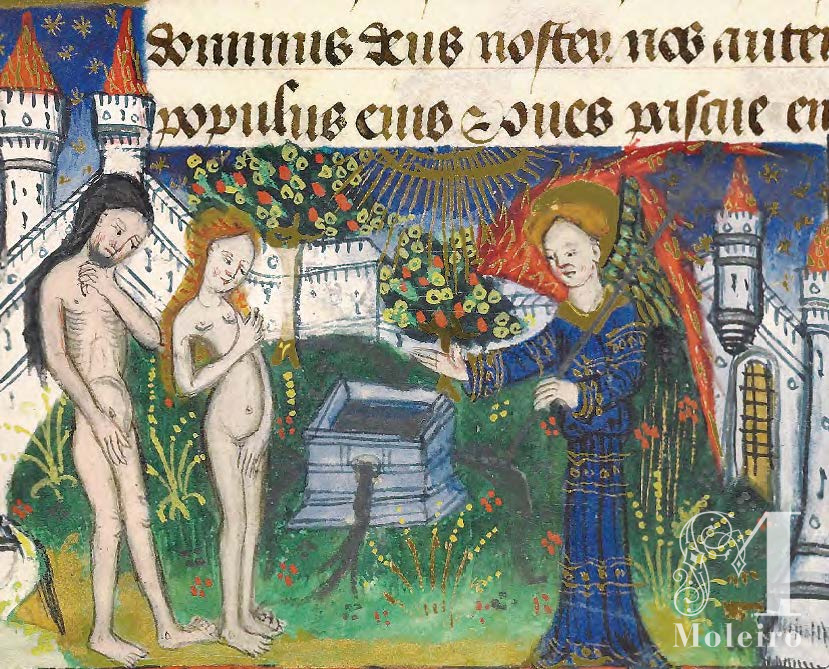 dominus deus noster. nos autem
populus eius & oues pascue eius
M
Moleiro